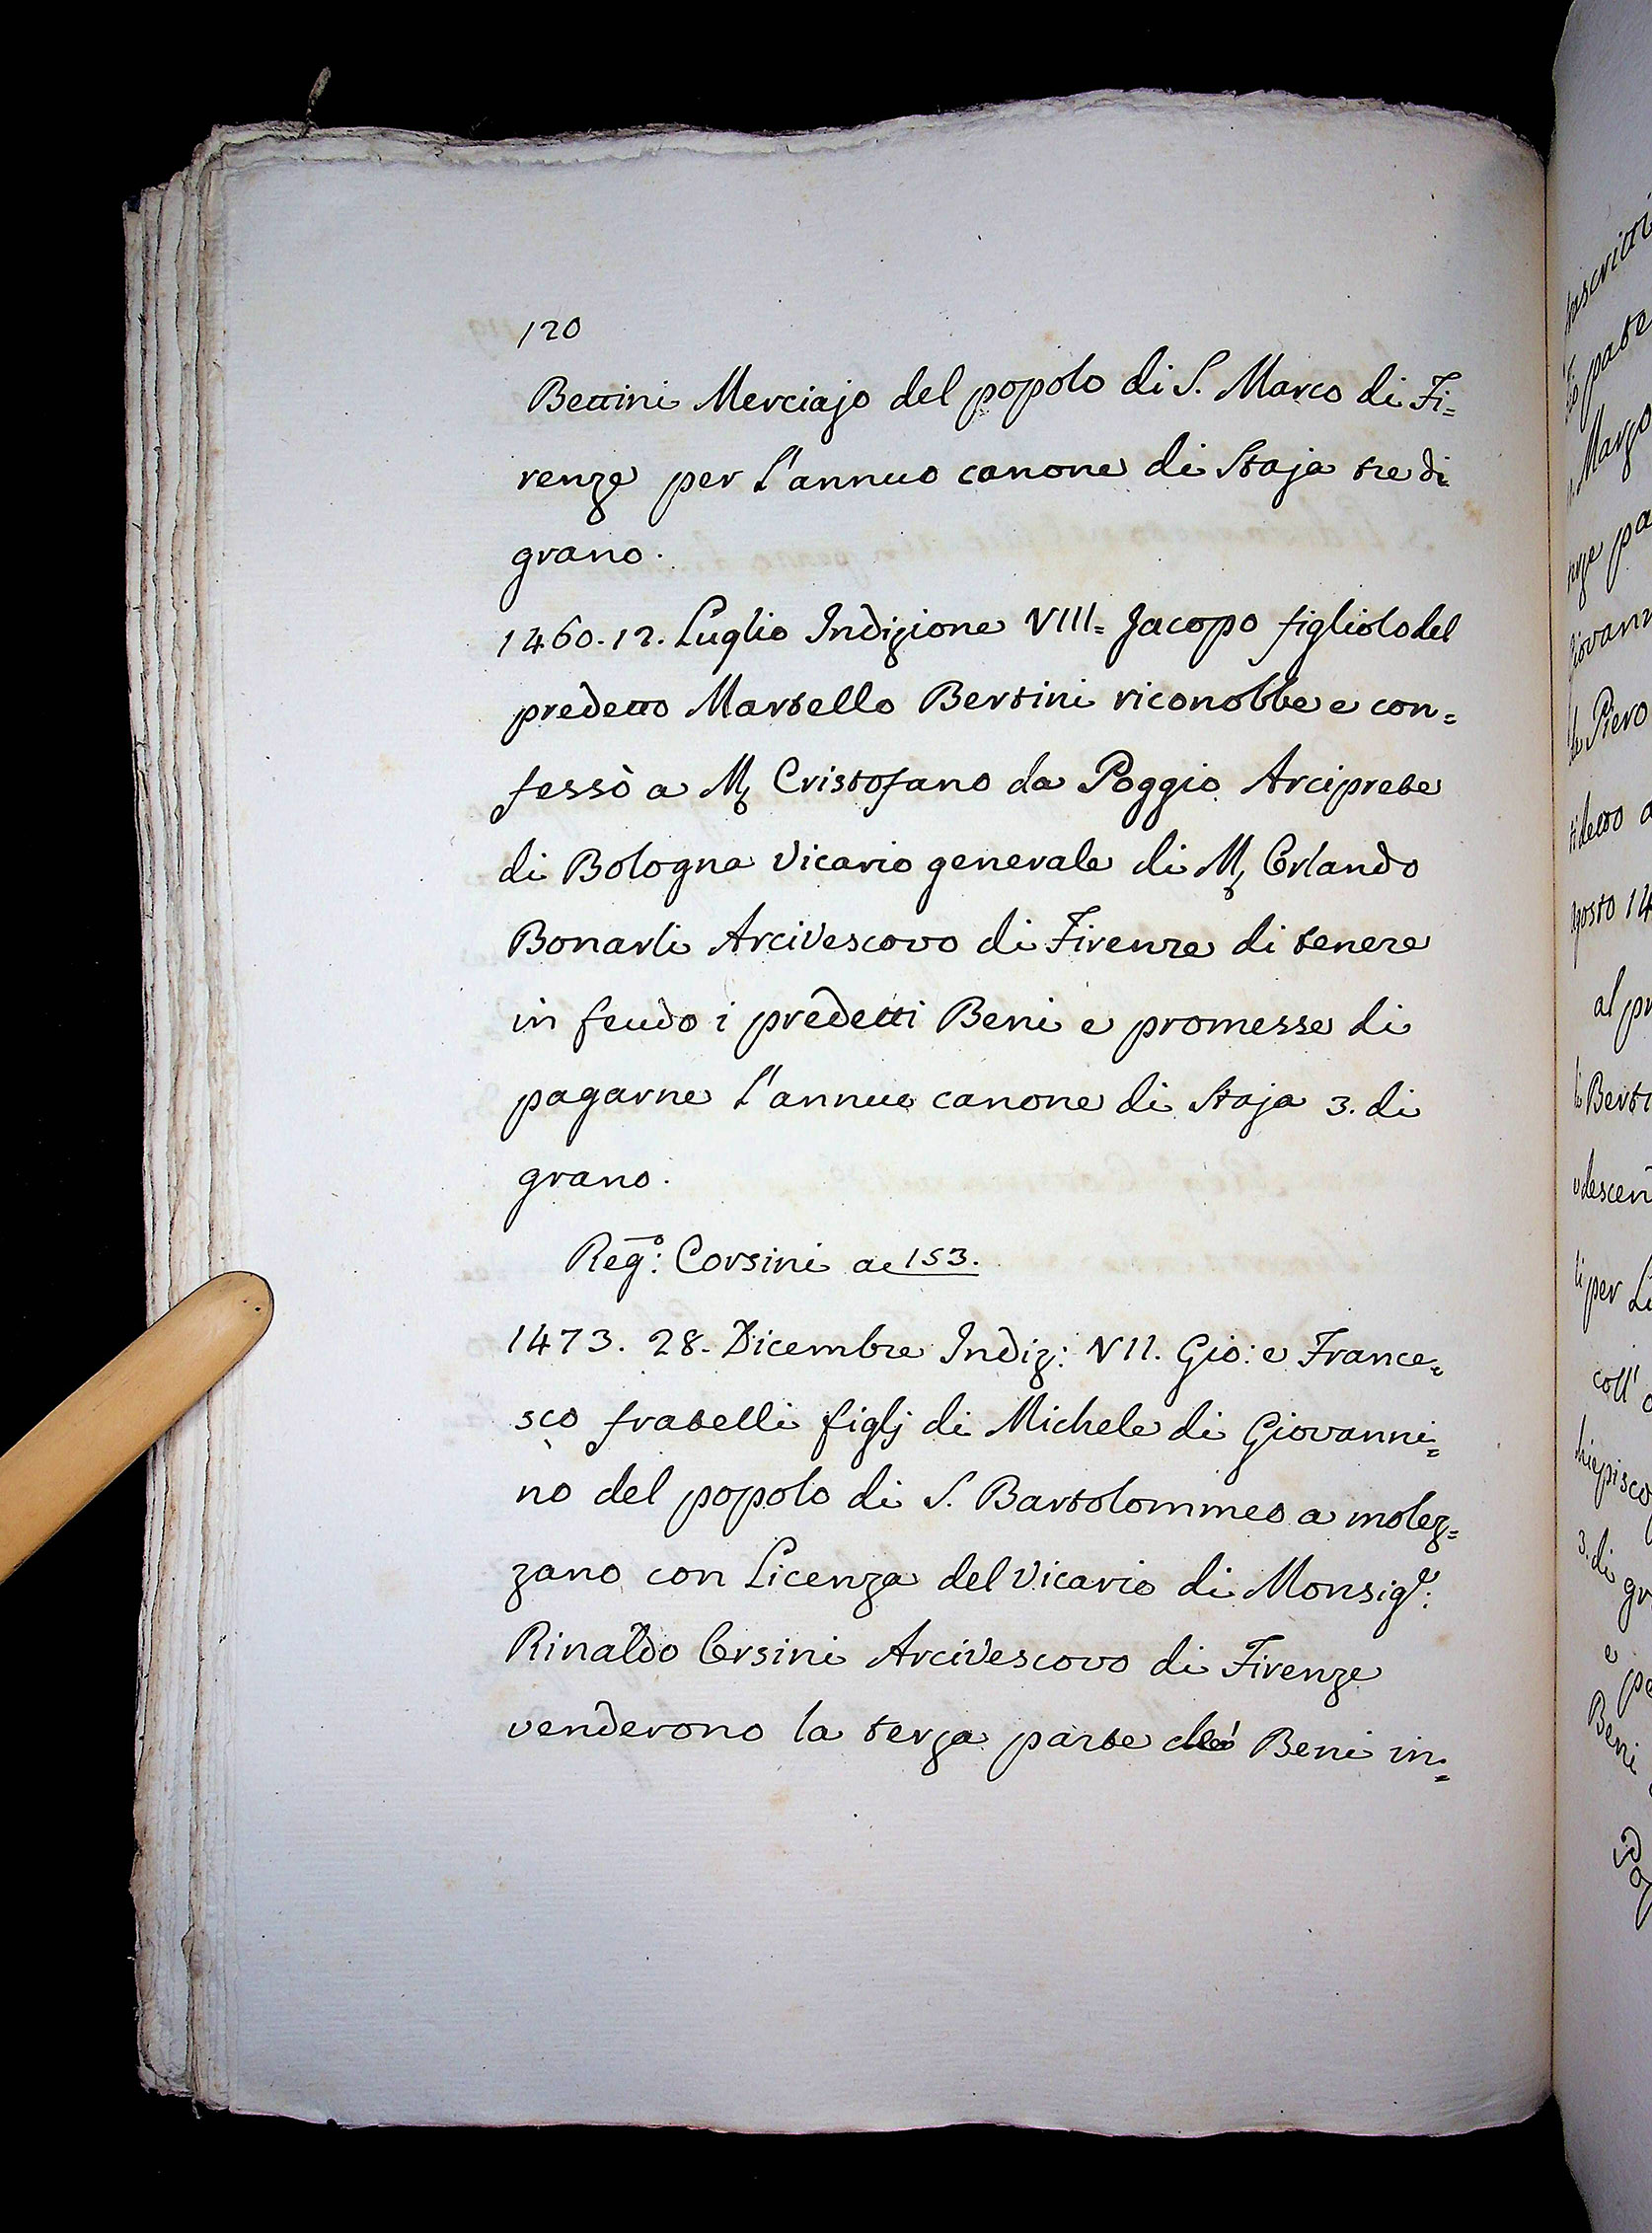 120
Bettini Merciajo del popolo di S. Marco di Fi=
renze per l'annuo canone di Staja tre di
grano.
1460. 12. Luglio Indizione VIII= Jacopo figliolo del
predetto Martello Bertini riconobbe e con=
fessò a M. Cristofano da Poggio Arciprete
di Bologna Vicario generale di M. Orlando
Bonarli Arcivescovo di Firenze di tenere
in feudo i predetti Beni e promesse di
pagarne l'annuo canone di Staja 3. di
grano.
Reg:o Corsini a 153.
1473. 28. Dicembre Indiz: VII. Gio: e France=
sco fratelli figlj di Michele di Giovanni=
no del popolo di S. Bartolommeo a molez=
zano con Licenza del Vicario di Monsig.r:
Rinaldo Orsini Arcivescovo di Firenze
venderono la terza parte de' Beni in=
Marzo
Piero
al
per
coll'
3. di
e
Beni